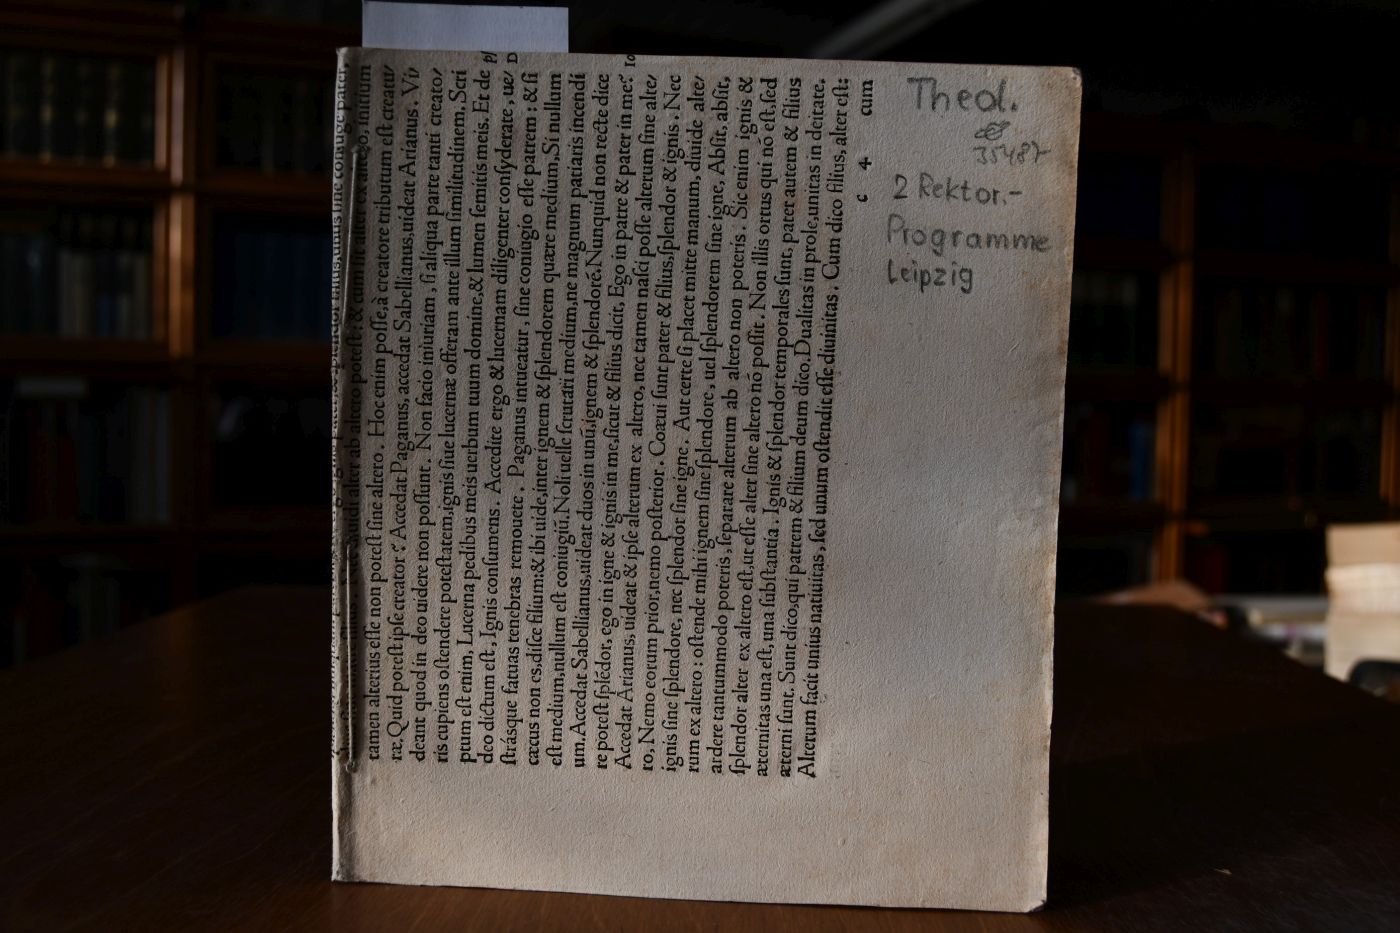 tamen alterius esse non potest sine altero. Hoc enim posse, à creatore tributum est creatu/
ræ, Quid potest ipse creator? Accedat Paganus, accedat Sabellianus, uideat Arianus. Vi/
deant quod in deo uidere non possunt. Non facio iniuriam, si aliqua parte tanti creato/
ris cupiens ostendere potestatem, ignis siue lucernæ offeram ante illum similitudinem. Scri
ptum est enim, Lucerna pedibus meis uerbum tuum domine, & lumen semitis meis. Et de
deo dictum est, Ignis consumens. Accedite ergo & lucernam diligenter consyderate, ue/
strásque fatuas tenebras remouete. Paganus intueatur, sine coniugio esse patrem; & si
cæcus non es, disce filium: & ibi uide, inter ignem & splendorem quære medium, Si nullum
est medium, nullum est coniugiũ. Noli uelle scrutari medium, ne magnum patiaris incendi
um. Accedat Sabellianus, uideat duos in unũ, ignem & splendorẽ. Nunquid non recte dice
re potest splẽdor, ego in igne & ignis in me, sicut & filius dicit, Ego in patre & pater in me?
Accedat Arianus, uideat & ipse alterum ex altero, nec tamen nasci posse alterum sine alte/
ro. Nemo eorum prior, nemo posterior. Coæui sunt pater & filius, splendor & ignis. Nec
ignis sine splendore, nec splendor sine igne. Aut certe si placet mitte manum, diuide alte/
rum ex altero: ostende mihi ignem sine splendore, uel splendorem sine igne, Absit, absit,
ardere tantummodo poteris, separare alterum ab altero non poteris. Sic enim ignis &
splendor alter ex altero est, ut esse alter sine altero nõ possit. Non illis ortus qui nõ est, sed
æternitas una est, una substantia. Ignis & splendor temporales sunt, pater autem & filius
æterni sunt. Sunt dico, qui patrem & filium deum dico. Dualitas in prole, unitas in deitate.
Alterum facit unius natiuitas, sed unum ostendit esse diuinitas. Cum dico filius, alter est:
c 4 cum
Theol.
35487
2 Rektor.-
Programme
Leipzig